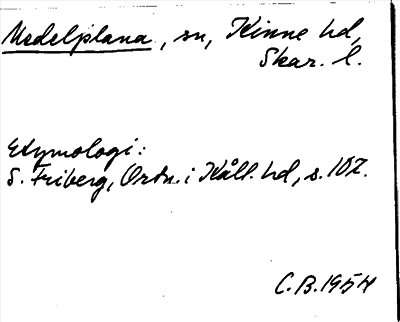 Medelplana, sn, Kinne hd,
Skar. l.
Etymologi:
S. Friberg, Ortn. i Kåll. hd, s. 107.
C.B. 1954